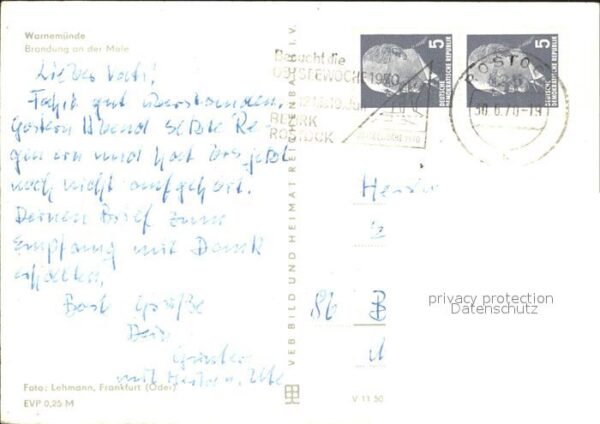 Warnemünde
Brandung an der Mole
Lieber Vati!
Fahrt gut überstanden,
gestern Abend setzte Re-
gen ein und hat bis jetzt
noch nicht aufgehört.
Deinen Brief zum
Empfang mit Dank
erhalten.
Beste Grüße
Dein
Günter
mit Herta u. Ute
Foto: Lehmann, Frankfurt (Oder)
EVP 0,25 M
VEB BILD UND HEIMAT REICHENBACH I. V.
Besucht die
OSTSEEWOCHE 1970
12.-19. Juli
BEZIRK
ROSTOCK
5
DEUTSCHE
DEMOKRATISCHE REPUBLIK
5
DEUTSCHE
DEMOKRATISCHE REPUBLIK
ROSTO
30.6.70-19
Herrn
86 B
privacy protection
Datenschutz
V 11 50